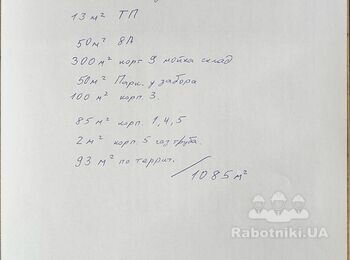 13 м² ТП
50 м² 8А
300 м² корп 9 мойка склад
50 м² Парк. у забора
100 м² корп. 3.
85 м² корп. 1,4,5
2 м² корп. 5 газ труба.
93 м² по террит.
1085 м²
Rabotniki.UA